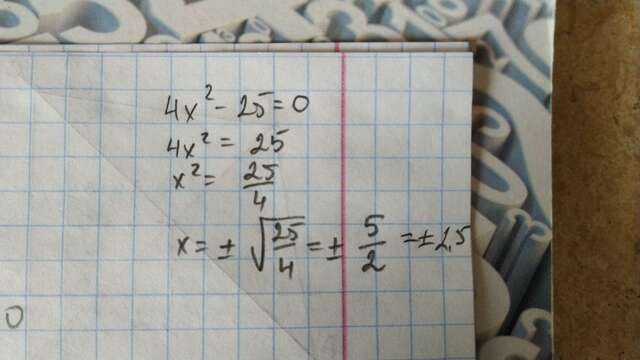 4x² - 25 = 0
4x² = 25
x² = 25/4
x = ± √25/4 = ± 5/2 = ± 2,5
0